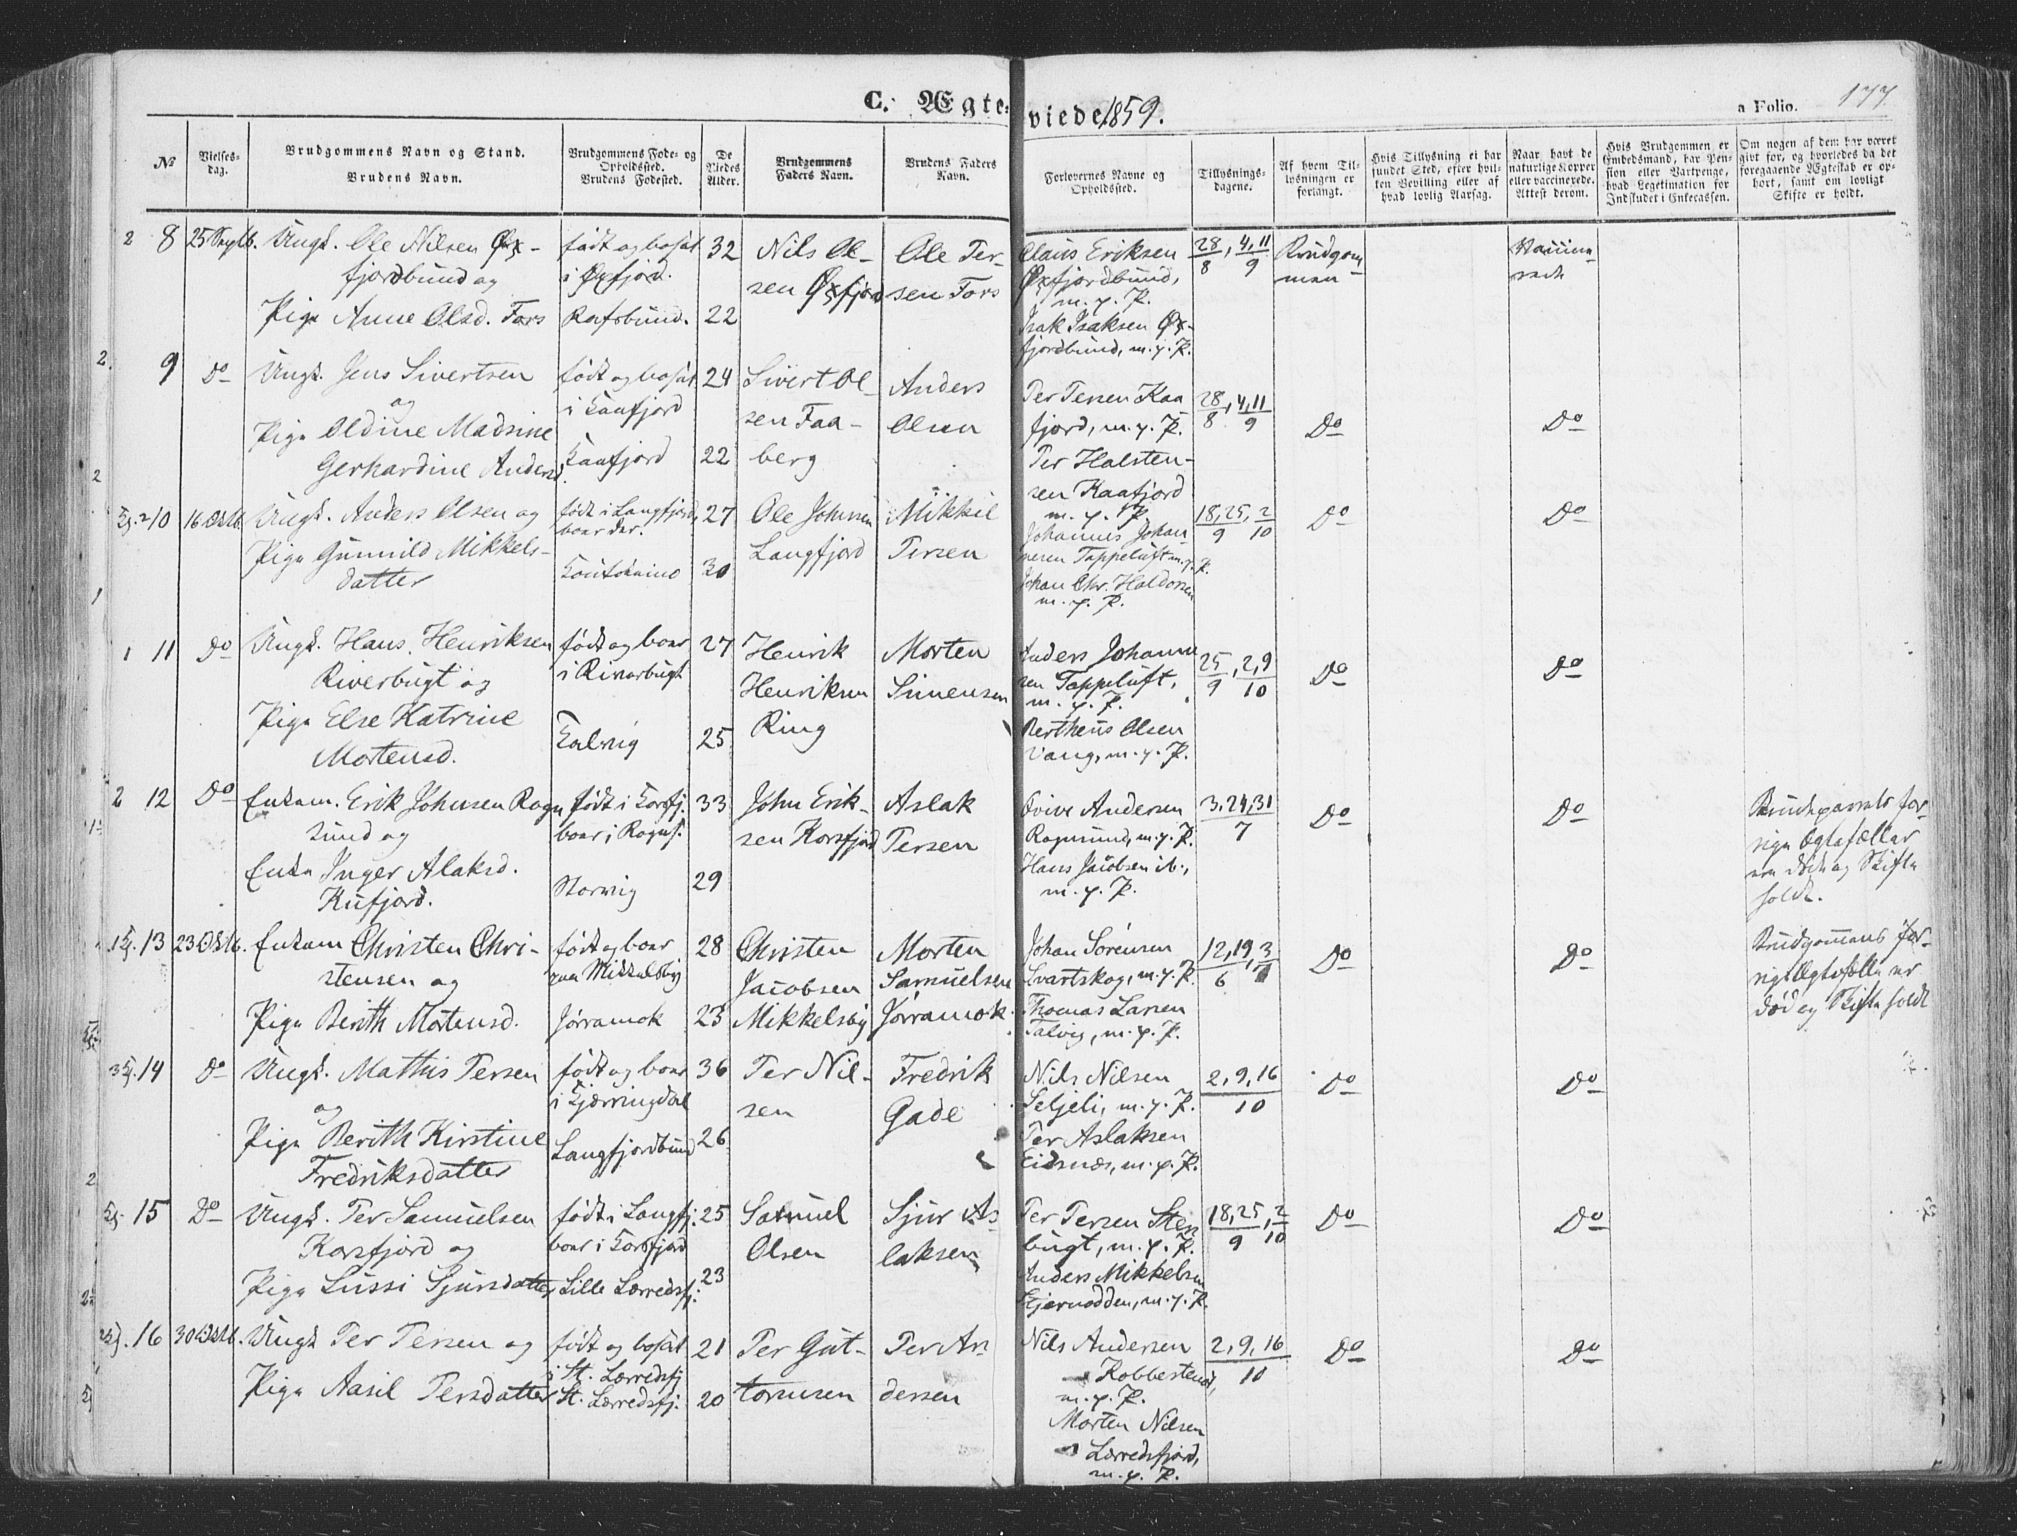 C. Ægteviede 1859.
a Folio. 177.
№
Vielses-
dag.
Brudgommens Navn og Stand.
Brudens Navn.
Brudgommens Føde- og
Opholdssted.
Brudens Fødested.
De
Viedes
Alder.
Brudgommens
Faders Navn.
Brudens Faders
Navn.
Forlovernes Navne og
Opholdssted.
Tillysnings-
dagene.
Af hvem Til-
lysningen er
forlangt.
Hvis Tillysning ei har
fundet Sted, efter hvil-
ken Bevilling eller af
hvad lovlig Aarsag.
Naar havt de
naturlige Kopper
eller vaccinerede.
Attest derom.
Hvis Brudgommen er
Embedsmand, har Pen-
sion eller Vartpenge,
hvad Legetimation for
Indskudet i Enkecassen.
Om nogen af dem har været
givt før, og hvorledes da det
foregaaende Ægteskab er op-
hørt, samt om lovligt
Skifte er holdt.
2 8 25 Septb.
Ungk. Ole Nilsen Øx-
fjordbund og
Pige Anne Olsd. Fors
født og bosat
i Øxfjord.
Rafsbund.
32
22
Nils Ol-
sen Øxfjord
Ole Per-
sen Fors
Claus Eriksen
Øxfjordbund,
m. p. P.
Isak Isaksen Øx-
fjordbund, m. p. P.
28/8, 4, 11/9
Brudgom-
men
Vaccine-
rede
2 9 Do
Ungk. Jens Sivertsen
og
Pige Oldine Madsine
Gerhardine Andersd.
født og bosat
i Kaafjord
Kaafjord
24
22
Sivert Ol-
sen Faa-
berg
Anders
Olsen
Per Persen Kaa-
fjord, m. p. P.
Per Halsten-
sen Kaafjord
m. p. P.
28/8, 4, 11/9
Do
Do
10 16 Oktb.
Ungk. Anders Olsen og
Pige Gunnild Mikkels-
datter
født i Langfjord,
boer der.
Koutokeino
27
30
Ole Johnsen
Langfjord
Mikkel
Persen
Johannes Johan-
nesen Tappeluft m. p. P.
Johan Chr. Haldorsen
m. p. P.
18, 25/9, 2/10
Do
Do
1 11 Do
Ungk. Hans Henriksen
Riverbugt og
Pige Else Katrine
Mortensd.
født og boer
i Riverbugt
Talvig
27
25
Henrik
Henriksen
Ring
Morten
Simensen
Anders Johanne-
sen Tappeluft,
m. p. P.
Bertheus Olsen
Vang, m. p. P.
25/9, 2, 9/10
Do
Do
2 12 Do
Enkem. Erik Johnsen Rogn-
sund og
Enke Inger Alaksd.
Kufjord.
født i Korsfj.
boer i Rogns.
Storvig
33
29
John Erik-
sen Korsfjord
Aslak
Persen
Ovive Andersen
Rognsund, m. p. P.
Hans Jacobsen ib.,
m. p. P.
3, 24, 31/7
Do
Do
Brudeparrets for-
rige Ægtefæller
ere døde og Skifte
holdt.
13 23 Oktb.
Enkem Christen Chri-
stensen og
Pige Berith Mortensd.
født og boer
paa Mikkelsby
Jørramok
28
23
Christen
Jacobsen
Mikkelsby
Morten
Samuelsen
Jørramok
Johan Sørensen
Svartskog, m. p. P.
Thomas Larsen
Talvig, m. p. P.
12, 19/6, 3/7
Do
Do
Brudgommens for-
rige Ægtefælle er
død og Skifte holdt
14 Do
Ungk. Mathis Persen
og
Pige Berith Kirstine
Fredriksdatter
født og boer
i Kjærringdal
Langfjordbund
36
26
Per Nil-
sen
Fredrik
Gade
Nils Nilsen
Seljeli, m. p. P.
Per Aslaksen
Eidsnæs, m. p. P.
2, 9, 16/10
Do
Do
15 Do
Ungk. Per Samuelsen
Korsfjord og
Pige Sussi Sjursdatter
født i Langfj.
boer i Korsfjord
Lille Lærredsfj.
25
23
Samuel
Olsen
Sjur As-
laksen
Per Persen Sten-
bugt, m. p. P.
Anders Mikkelsen
Stjernodden, m. p. P.
18, 25/9, 2/10
Do
Do
16 30 Oktb.
Ungk Per Persen og
Pige Aasil Persdatter
født og bosat
i St. Lærredsfj
St. Lærredsfj.
21
20
Per Gut-
tormsen
Per An-
dersen
Nils Andersen
Kobbesteens,
m. p. P.
Morten Nilsen
Lærredsfjord,
m. p. P.
2, 9, 16/10
Do
Do